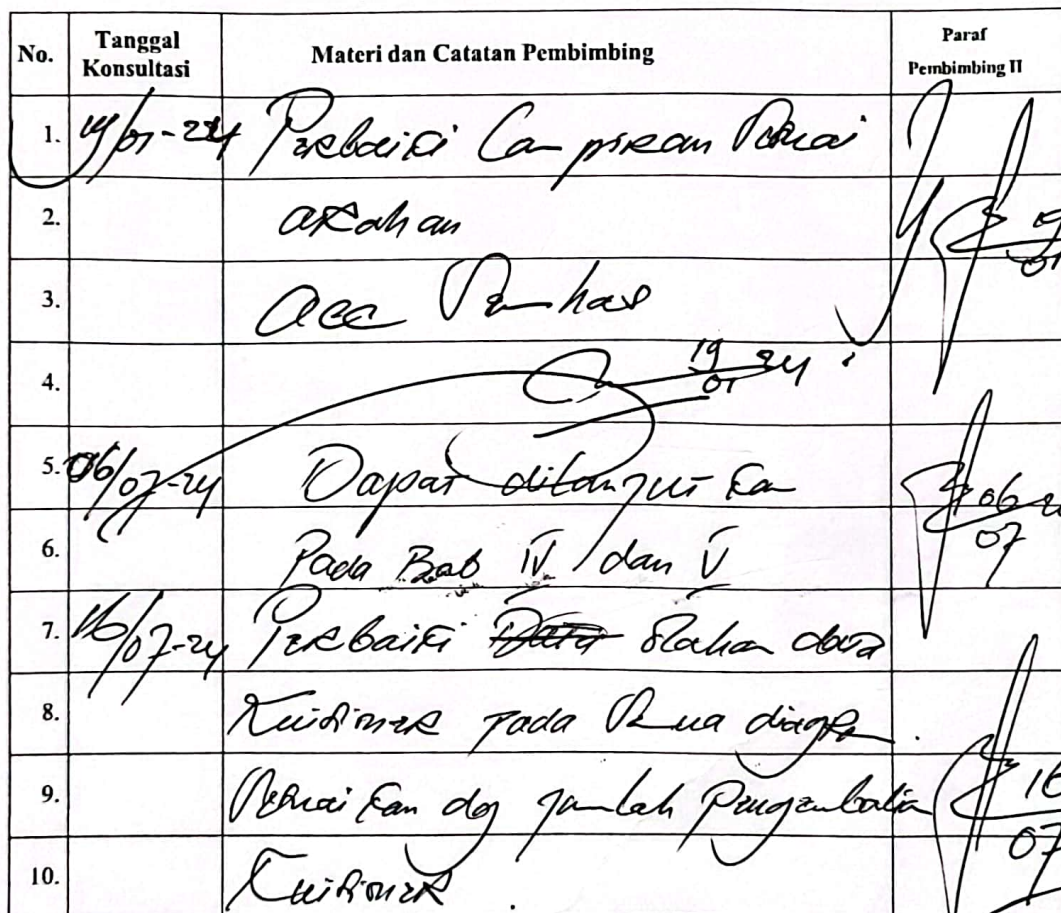 No. Tanggal Konsultasi Materi dan Catatan Pembimbing Paraf Pembimbing II
1. 19/01-24 Perbaiki Lampiran Sesuai
2. arahan
19/01
3. acc Semhas
4. 19/01 24
5. 06/07-24 Dapat dilanjutkan
06/07
6. Pada Bab IV dan V
7. 16/07-24 Perbaiki Data Olahan data
8. Kuisioner pada semua diagram.
9. Sesuaikan dg jumlah Pengembalian
16/07
10. Kuisioner.